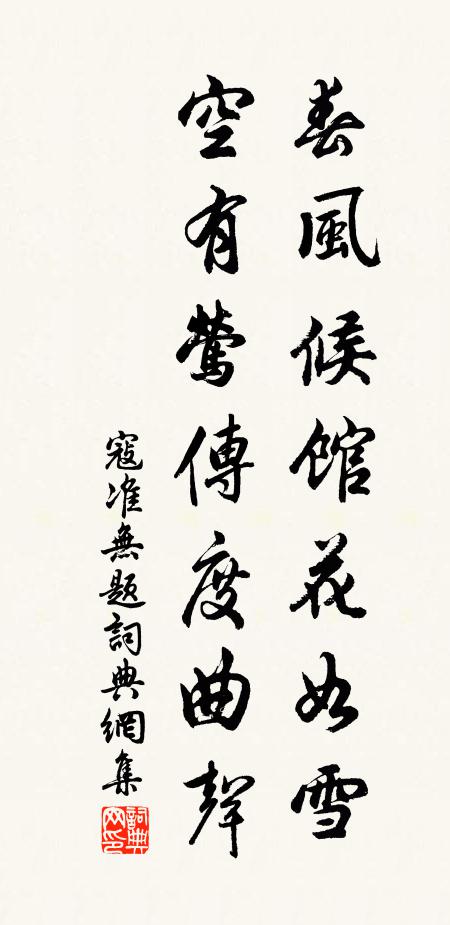 春風候館花如雪
空有鶯傳度曲聲
寇准無題詞典網集
詞典網印